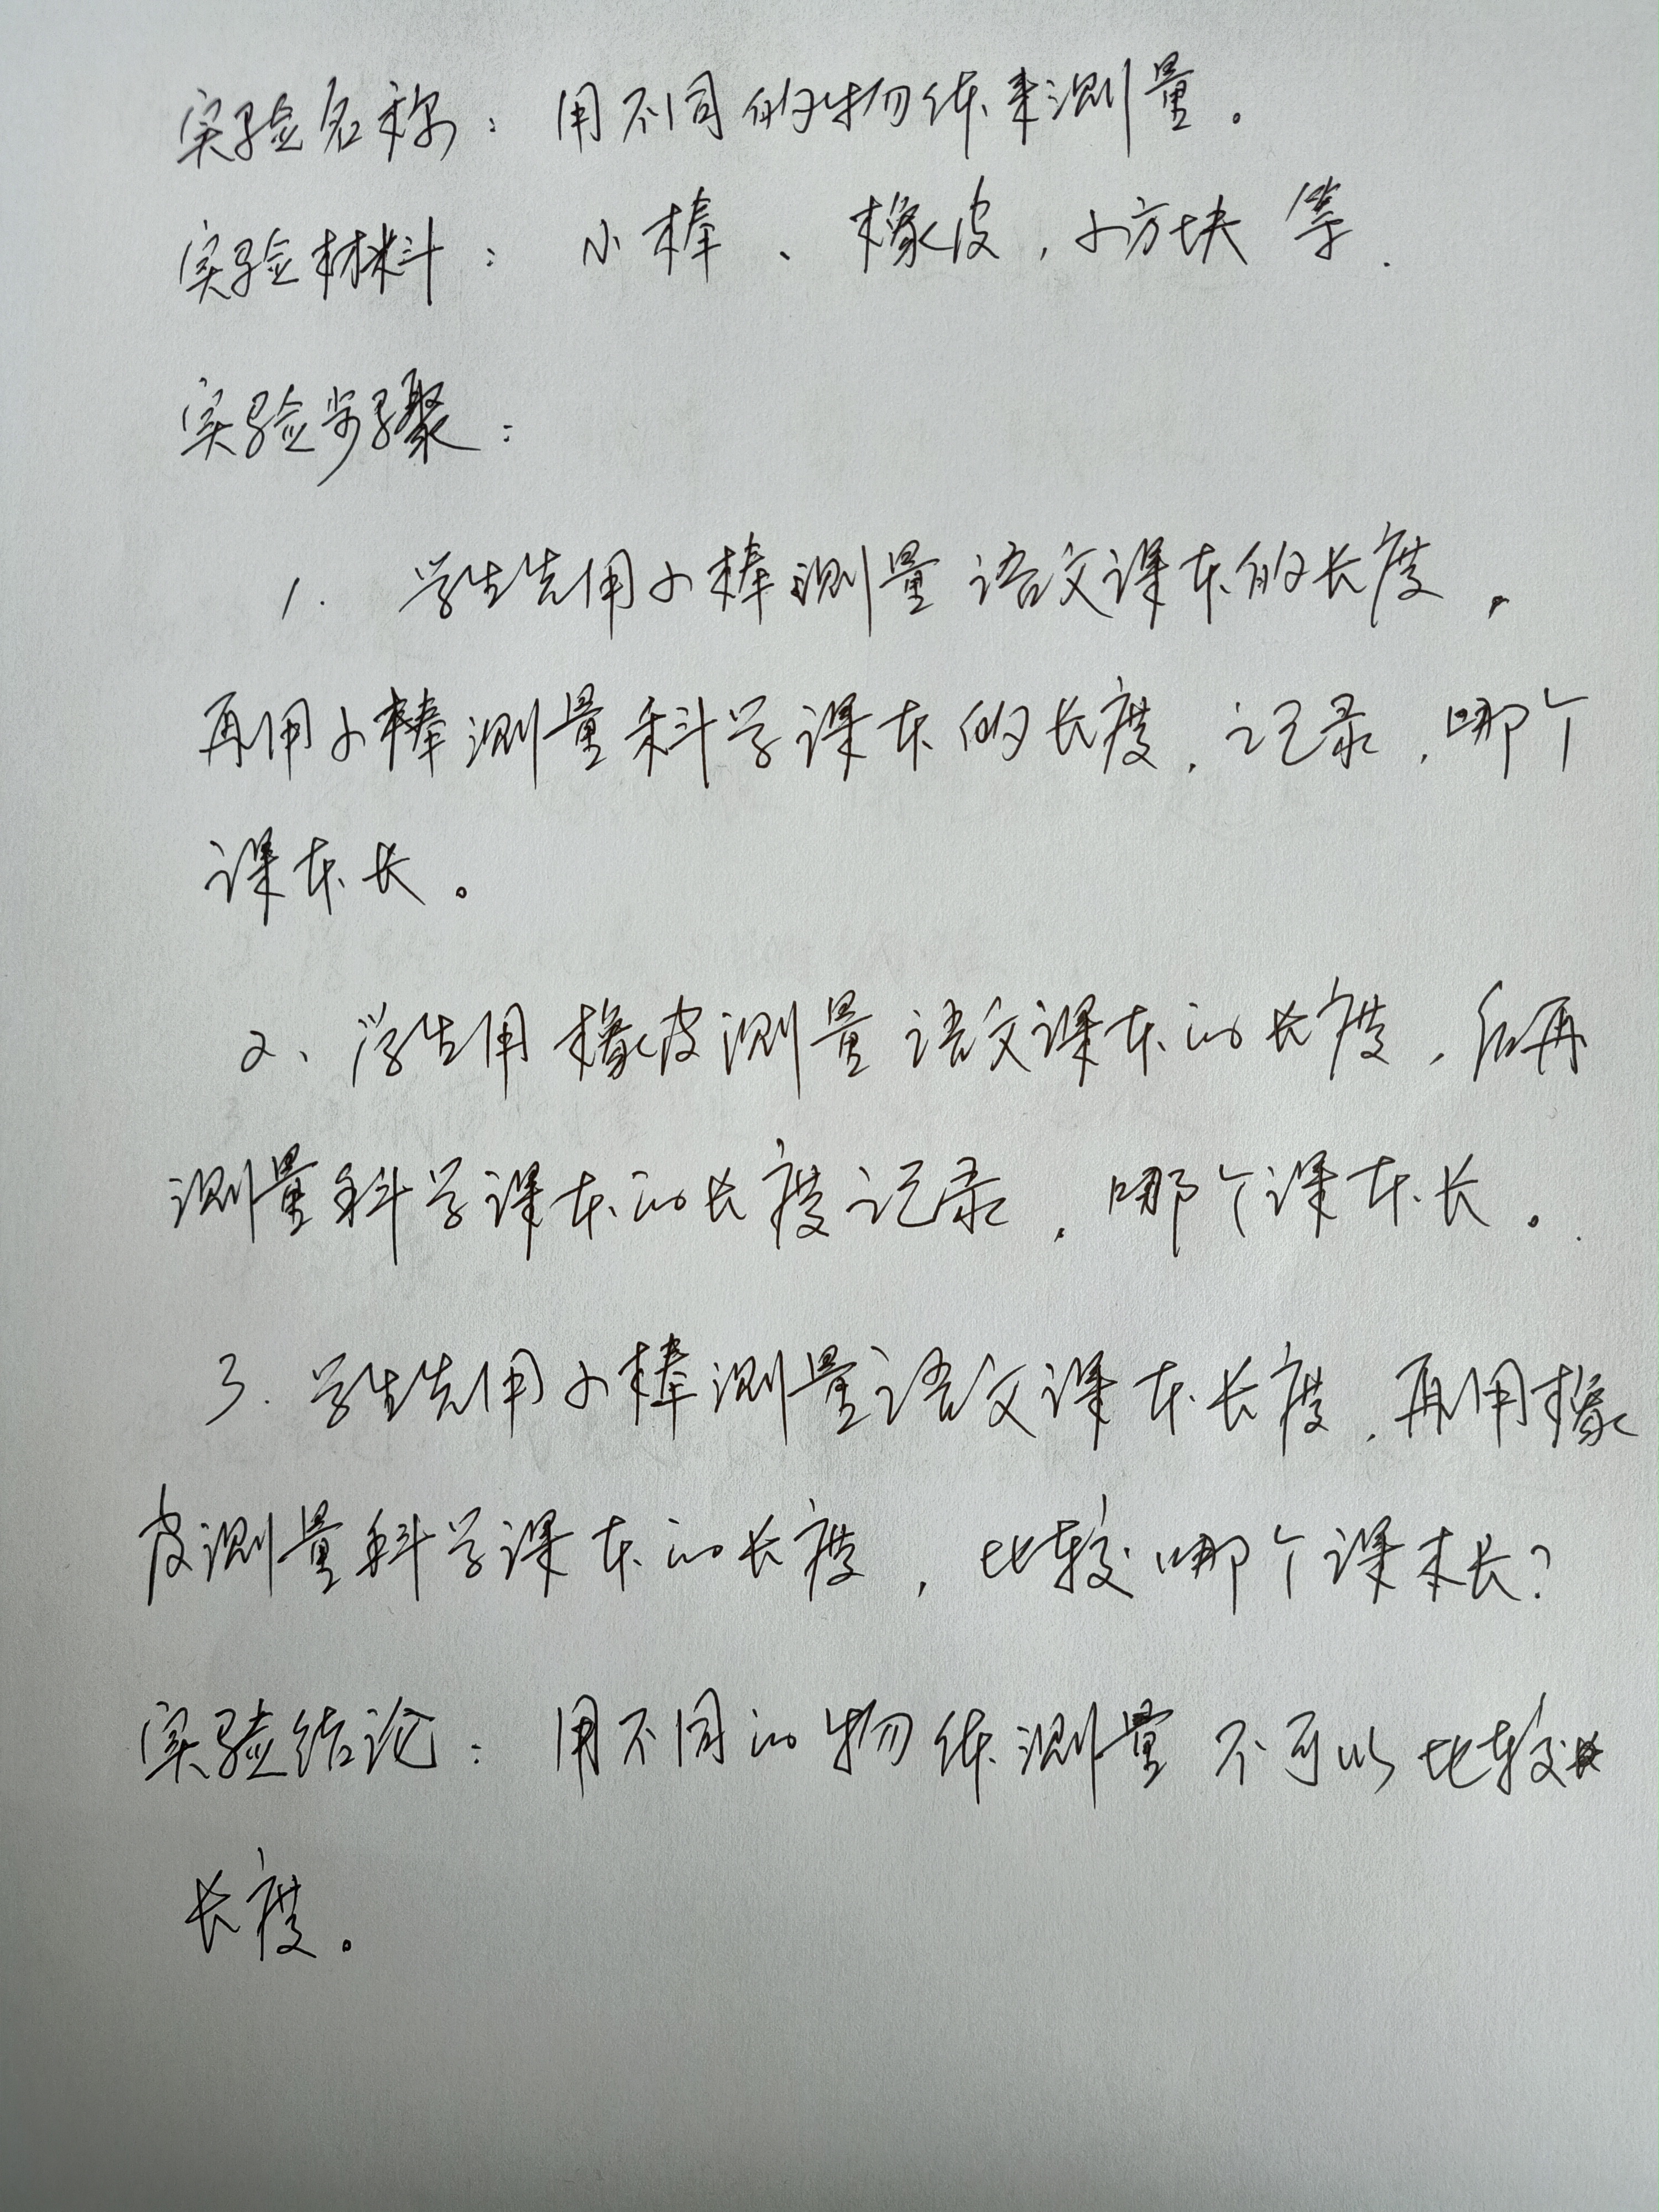 实验名称：用不同的物体来测量。
实验材料：小棒、橡皮，小方块等.
实验步骤：
1. 学生先用小棒测量语文课本的长度，
再用小棒测量科学课本的长度，记录，哪个
课本长。
2、学生用橡皮测量语文课本的长度，后再
测量科学课本的长度记录，哪个课本长。
3. 学生先用小棒测量语文课本长度，再用橡
皮测量科学课本的长度，比较哪个课本长？
实验结论：用不同的物体测量不可以比较
长度。